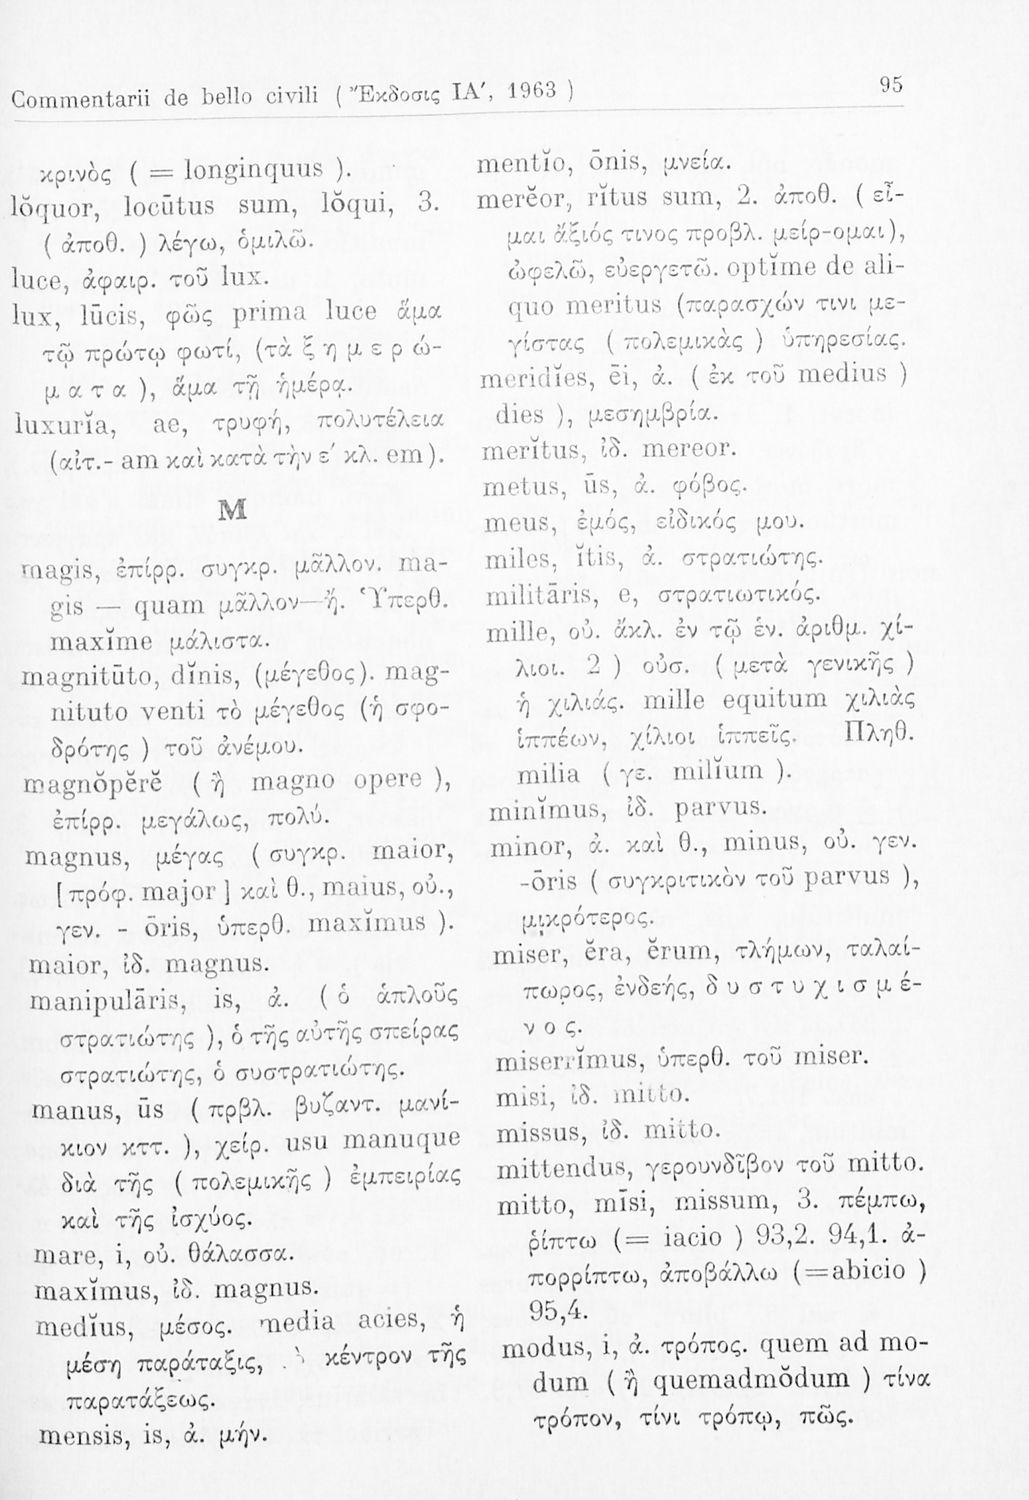 Commentarii de bello civili ( Ἔκδοσις ΙΑ′, 1963 )
95
κρινὸς ( = longinquus ).
lŏquor, locūtus sum, lŏqui, 3.
( ἀποθ. ) λέγω, ὁμιλῶ.
luce, ἀφαιρ. τοῦ lux.
lux, lūcis, φῶς prima luce ἅμα
τῷ πρώτῳ φωτί, (τὰ ξ η μ ε ρ ώ-
μ α τ α ), ἅμα τῇ ἡμέρᾳ.
luxurĭa, ae, τρυφή, πολυτέλεια
(αἰτ.- am καὶ κατὰ τὴν ε΄ κλ. em).
M
magis, ἐπίρρ. συγκρ. μᾶλλον. ma-
gis — quam μᾶλλον—ἤ. Ὑπερθ.
maxĭme μάλιστα.
magnitūto, dĭnis, (μέγεθος). mag-
nituto venti τὸ μέγεθος (ἡ σφο-
δρότης ) τοῦ ἀνέμου.
magnŏpĕrĕ ( ἢ magno opere ),
ἐπίρρ. μεγάλως, πολύ.
magnus, μέγας ( συγκρ. maior,
[ πρόφ. major ] καὶ θ., maius, οὐ.,
γεν. - ōris, ὑπερθ. maxĭmus ).
maior, ἰδ. magnus.
manipulāris, is, ἀ. ( ὁ ἁπλοῦς
στρατιώτης ), ὁ τῆς αὐτῆς σπείρας
στρατιώτης, ὁ συστρατιώτης.
manus, ūs ( πρβλ. βυζαντ. μανί-
κιον κττ. ), χείρ. usu manuque
διὰ τῆς ( πολεμικῆς ) ἐμπειρίας
καὶ τῆς ἰσχύος.
mare, i, οὐ. θάλασσα.
maxĭmus, ἰδ. magnus.
medĭus, μέσος. media acies, ἡ
μέση παράταξις, κέντρον τῆς
παρατάξεως.
mensis, is, ἀ. μήν.
mentĭo, ōnis, μνεία.
merĕor, rĭtus sum, 2. ἀποθ. ( εἶ-
μαι ἄξιός τινος προβλ. μείρ-ομαι),
ὠφελῶ, εὐεργετῶ. optĭme de ali-
quo meritus (παρασχών τινι με-
γίστας ( πολεμικὰς ) ὑπηρεσίας.
meridĭes, ēi, ἀ. ( ἐκ τοῦ medius )
dies ), μεσημβρία.
merĭtus, ἰδ. mereor.
metus, ūs, ἀ. φόβος.
meus, ἐμός, εἰδικός μου.
miles, ĭtis, ἀ. στρατιώτης.
militāris, e, στρατιωτικός.
mille, οὐ. ἄκλ. ἐν τῷ ἑν. ἀριθμ. χί-
λιοι. 2 ) οὐσ. ( μετὰ γενικῆς )
ἡ χιλιάς. mille equitum χιλιὰς
ἱππέων, χίλιοι ἱππεῖς. Πληθ.
milia ( γε. milĭum ).
minĭmus, ἰδ. parvus.
minor, ἀ. καὶ θ., minus, οὐ. γεν.
-ōris ( συγκριτικὸν τοῦ parvus ),
μικρότερος.
miser, ĕra, ĕrum, τλήμων, ταλαί-
πωρος, ἐνδεής, δ υ σ τ υ χ ι σ μ έ-
ν ο ς.
miserrĭmus, ὑπερθ. τοῦ miser.
misi, ἰδ. mitto.
missus, ἰδ. mitto.
mittendus, γερουνδῖβον τοῦ mitto.
mitto, mīsi, missum, 3. πέμπω,
ῥίπτω (= iacio ) 93,2. 94,1. ἀ-
πορρίπτω, ἀποβάλλω (=abicio )
95,4.
modus, i, ἀ. τρόπος. quem ad mo-
dum ( ἢ quemadmŏdum ) τίνα
τρόπον, τίνι τρόπῳ, πῶς.